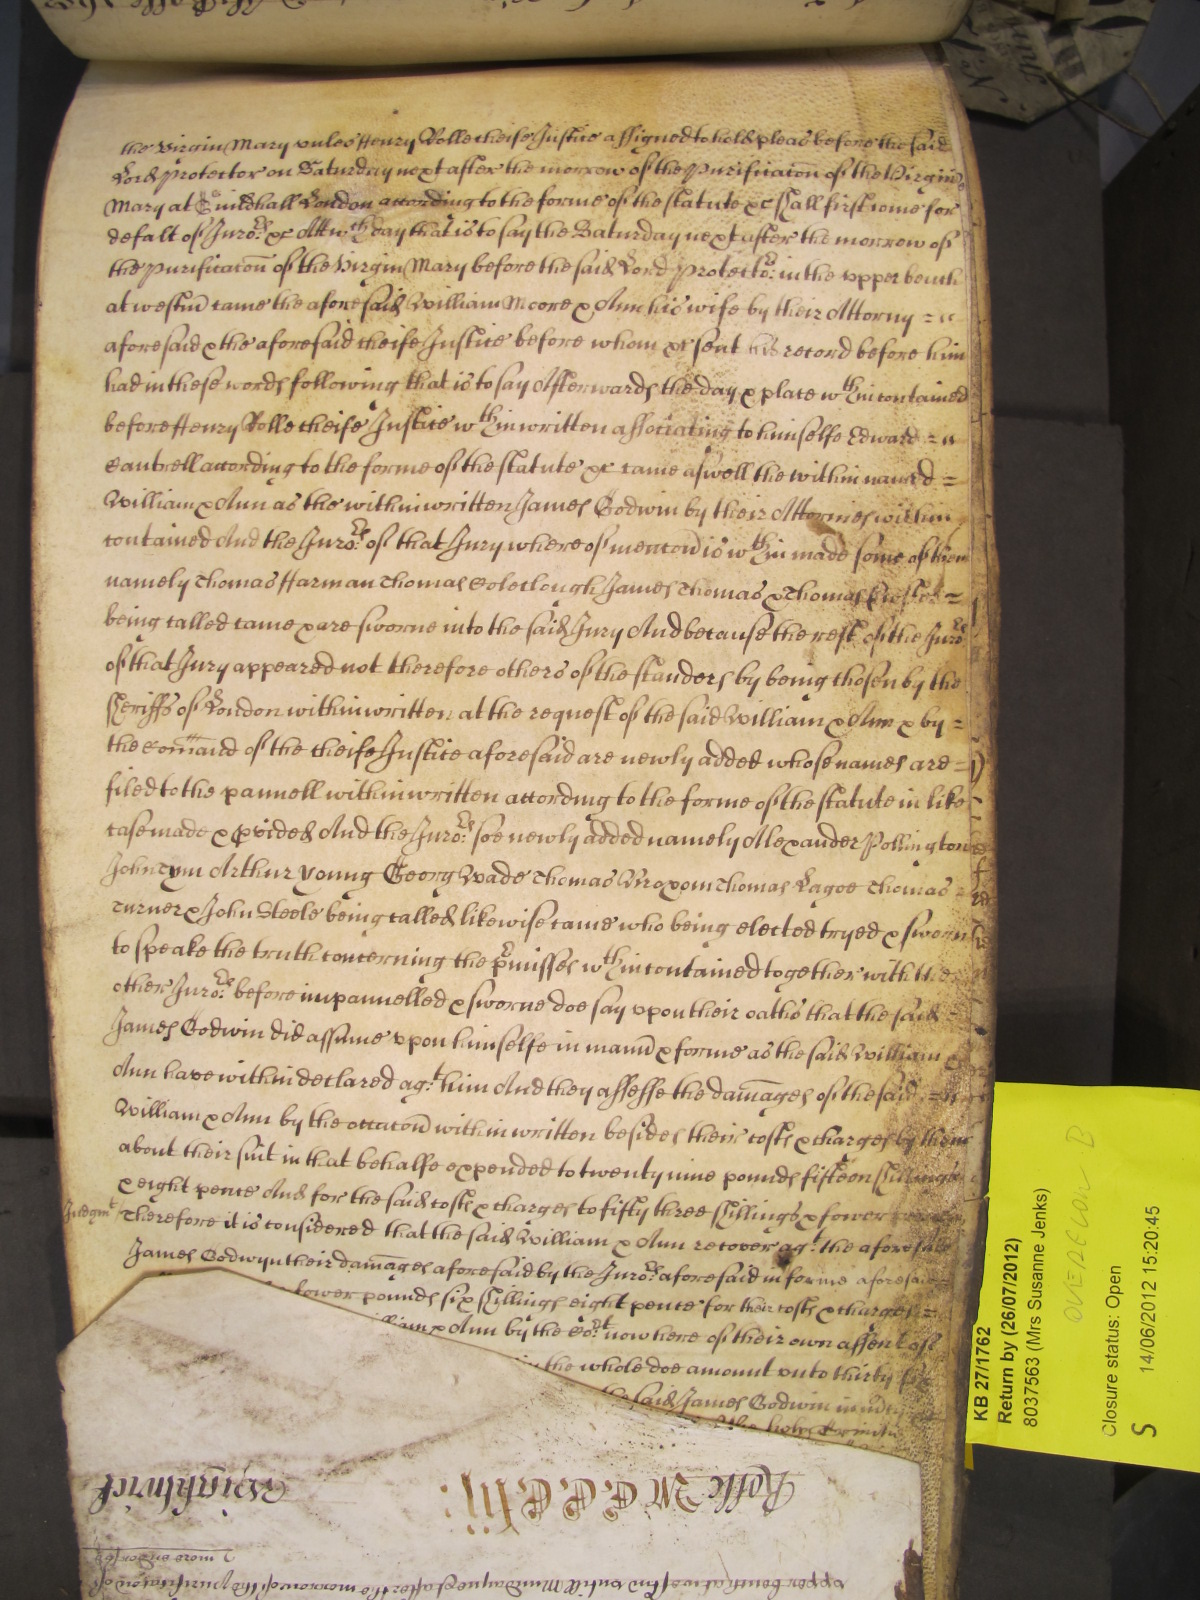 the Virgin Mary unles Henry Rolle cheife Justice assigned to hold pleas before the said
Lord Protector on Saturday next after the morrow of the Purificacon of the Virgin
Mary at Guildhall London according to the forme of the statute &c shall first come for
defalt of Juro:rs &c Att wch day that is to say the Saturday next after the morrow of
the purificacon of the Virgin Mary before the said Lord Protecto:r in the upper bench
at westm came the aforesaid William Moore & Ann his wife by their Attorny =
aforesaid & the aforesaid cheife Justice before whom &c sent his record before him
had in these words following that is to say Afterwards the day & place wth in contained
before Henry Rolle cheife Justice wth in written associating to himselfe Edward =
Cantrell according to the forme of the statute &c came aswell the within named =
William & Ann as the within written James Godwin by their Attornies within
contained And the Juro:rs of that Jury where of mencon is wth in made some of them
namely Thomas Harman Thomas Colclough James Thomas & Thomas =
being called came & are sworne into the said Jury And because the rest of the Juro:rs
of that Jury appeared not therefore others of the standers by being chosen by the
Sheriffs of London within written at the request of the said William & Ann & by =
the Comand of the cheife Justice aforesaid are newly added whose names are =
filed to the pannell within written according to the forme of the statute in like
case made & pvided And the Juro:rs soe newly added namely Alexander Pollington
John Tym Arthur Young Georg Wade Thomas Thomas Lagoe Thomas =
Turner & John Steele being called likewise came who being elected tryed & sworne
to speake the truth concerning the pmisses wth in contained together with the
other Juro:rs before impannelled & sworne doe say upon their oaths that the said =
James Godwin did assume upon himselfe in mann & forme as the said William &
Ann have within declared ag:t him And they assesse the damages of the said =
William & Ann by the occacon within written besides their costs & charges by them
about their suit in that behalfe expended to twenty nine pounds fifteen shillings
& eight pence And for the said costs & charges to fifty three shillings & fower
Judgmt Therefore it is considered that the said William & Ann recover ag:t the aforesaid
James Godwyn their damages aforesaid by the Juro:rs aforesaid in forme aforesaid
fower pounds six shillings eight pence for their costs & charges =
& Ann by the Co:rt now here of their own assent
the whole doe amount unto thirty
the said James Godwin in
the holy Trinity
KB 27/1762
Return by (26/07/2012)
8037563 (Mrs Susanne Jenks)
OVERELON B
Closure status: Open
S 14/06/2012 15:20:45
Rolle